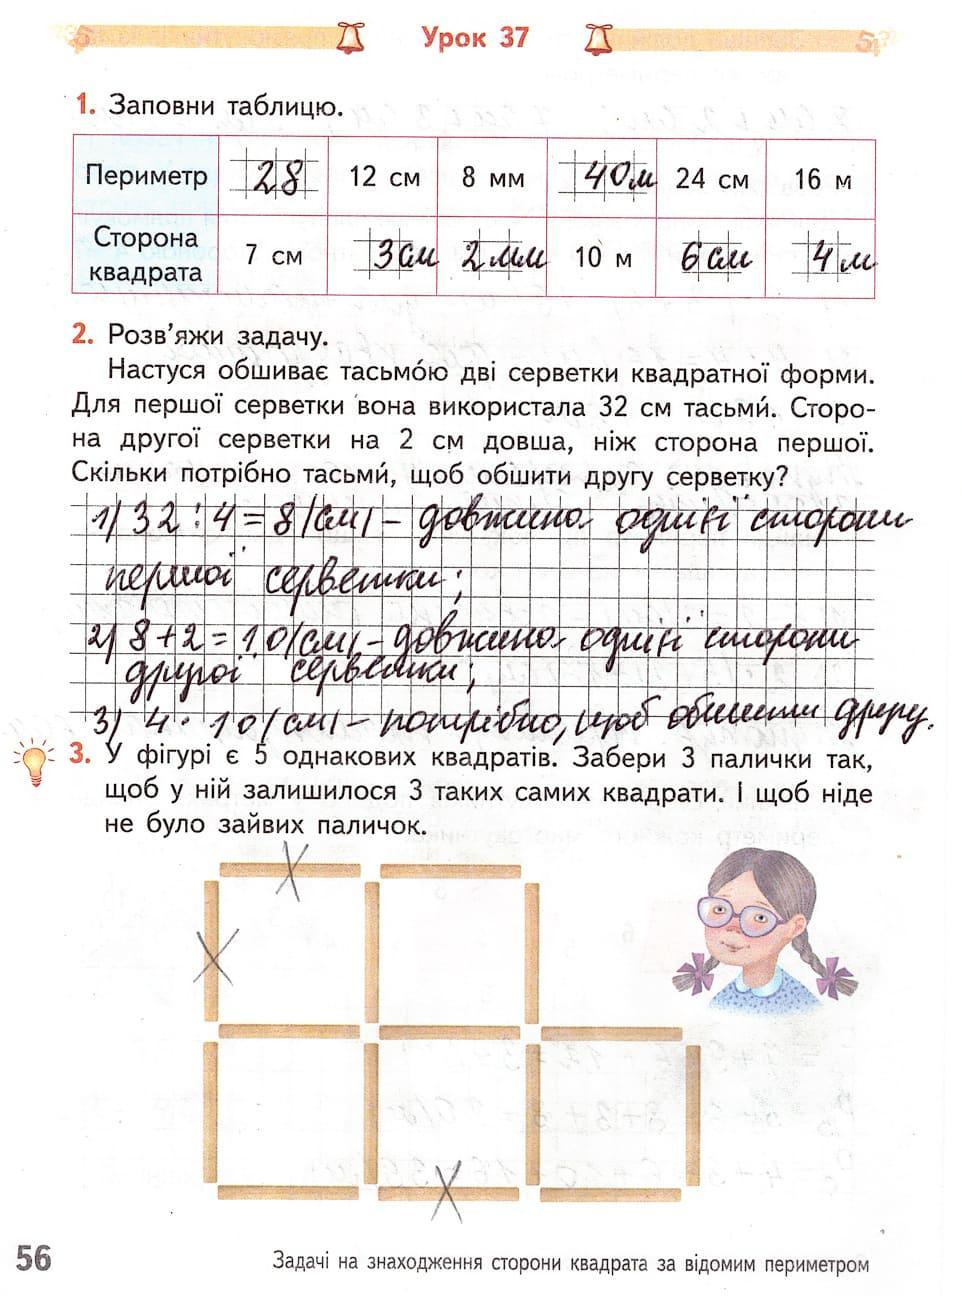 Урок 37
1. Заповни таблицю.
Периметр 28 12 см 8 мм 40м 24 см 16 м
Сторона квадрата 7 см 3см 2мм 10 м 6см 4м
2. Розв’яжи задачу.
Настуся обшиває тасьмо́ю дві серветки квадратної форми.
Для першої серветки вона використала 32 см тасьми́. Сторо-
на другої серветки на 2 см довша, ніж сторона першої.
Скільки потрібно тасьми́, щоб обшити другу серветку?
1) 32 : 4 = 8 (см) – довжина однієї сторони
першої серветки;
2) 8 + 2 = 10 (см) – довжина однієї сторони
другої серветки;
3) 4 · 10 (см) – потрібно, щоб обшити другу.
3. У фігурі є 5 однакових квадратів. Забери 3 палички так,
щоб у ній залишилося 3 таких самих квадрати. І щоб ніде
не було зайвих паличок.
56
Задачі на знаходження сторони квадрата за відомим периметром